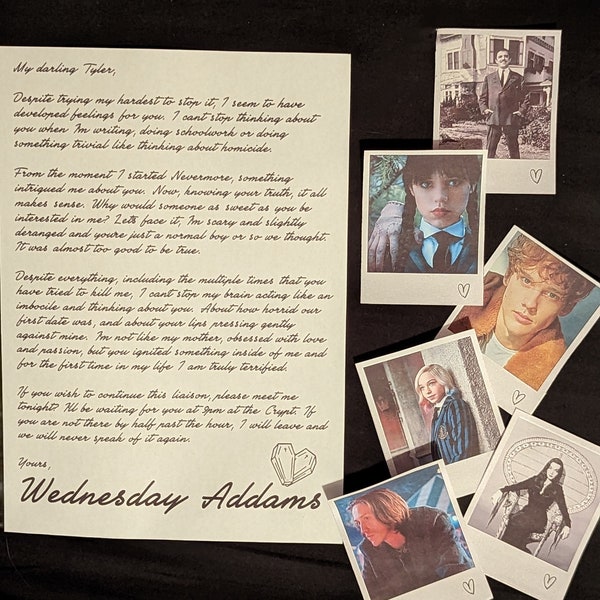 My darling Tyler,
Despite trying my hardest to stop it, I seem to have
developed feelings for you. I cant stop thinking about
you when I'm writing, doing schoolwork or doing
something trivial like thinking about homicide.
From the moment I started Nevermore, something
intrigued me about you. Now, knowing your truth, it all
makes sense. Why would someone as sweet as you be
interested in me? Lets face it, I'm scary and slightly
deranged and youre just a normal boy or so we thought.
It was almost too good to be true.
Despite everything, including the multiple times that you
have tried to kill me, I cant stop my brain acting like an
imbocile and thinking about you. About how horrid our
first date was, and about your lips pressing gently
against mine. I'm not like my mother, obsessed with love
and passion, but you ignited something inside of me and
for the first time in my life I am truly terrified.
If you wish to continue this liaison, please meet me
tonight? I'll be waiting for you at 9pm at the Crypt. If
you are not there by half past the hour, I will leave and
we will never speak of it again.
Yours,
Wednesday Addams